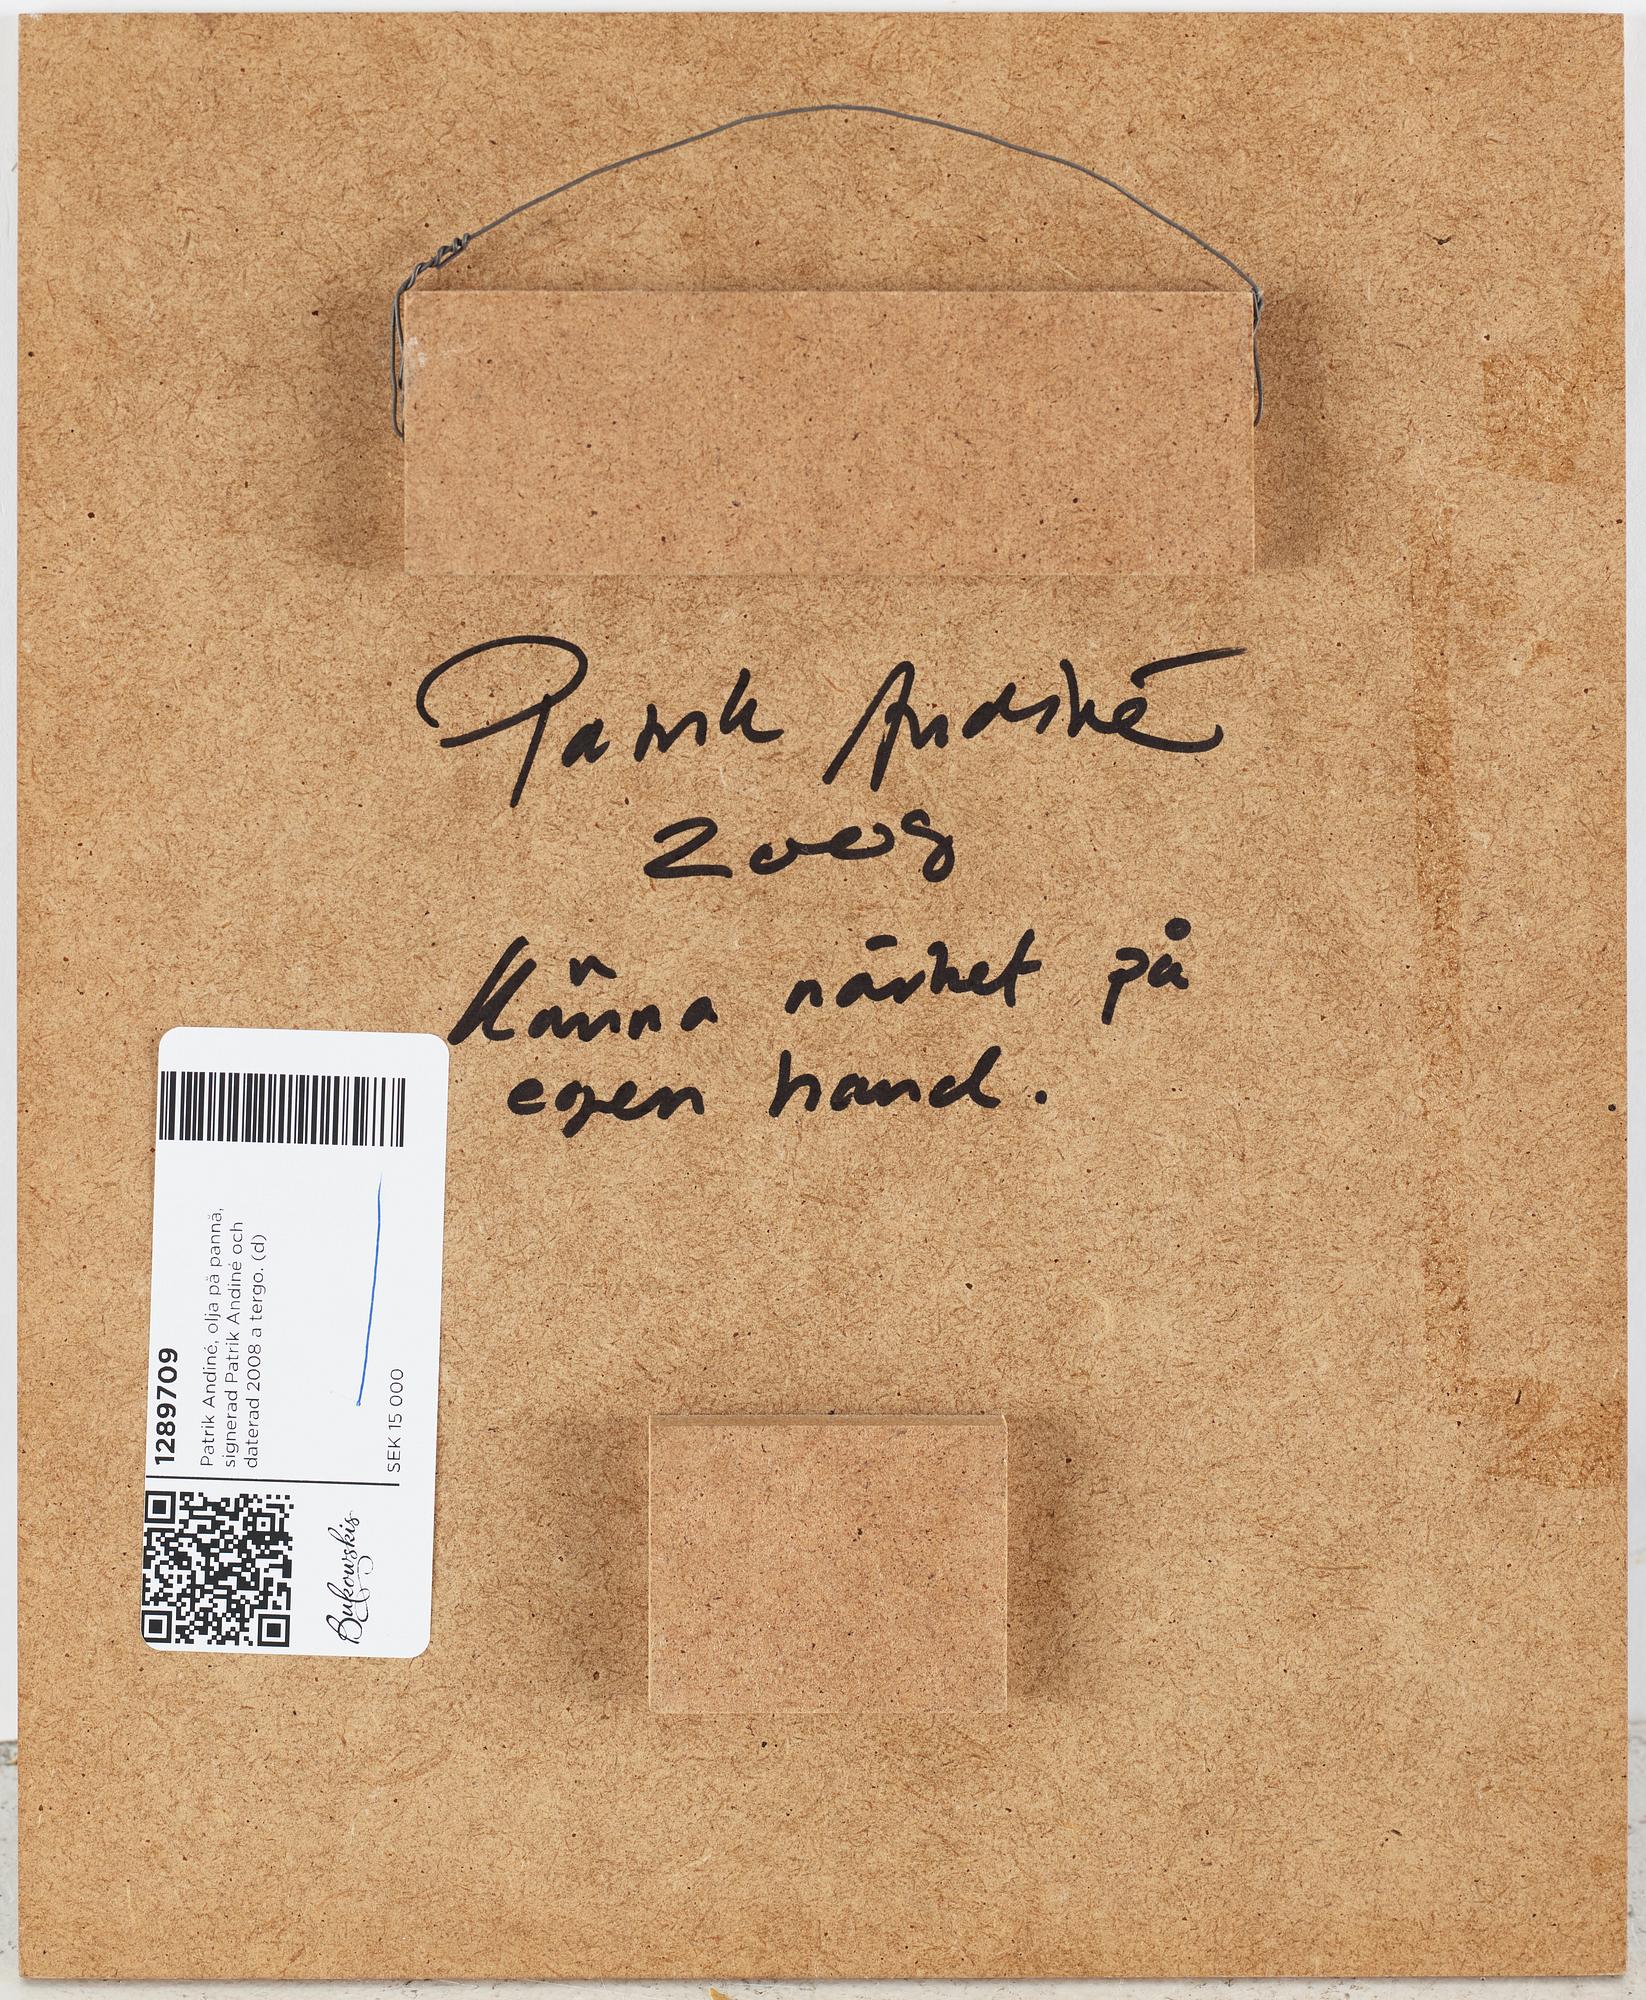 Patrik Andiné
2008
Känna närhet på
egen hand.
1289709
Patrik Andiné, olja på pannå,
signerad Patrik Andiné och
daterad 2008 a tergo. (d)
SEK 15 000
Bukowskis